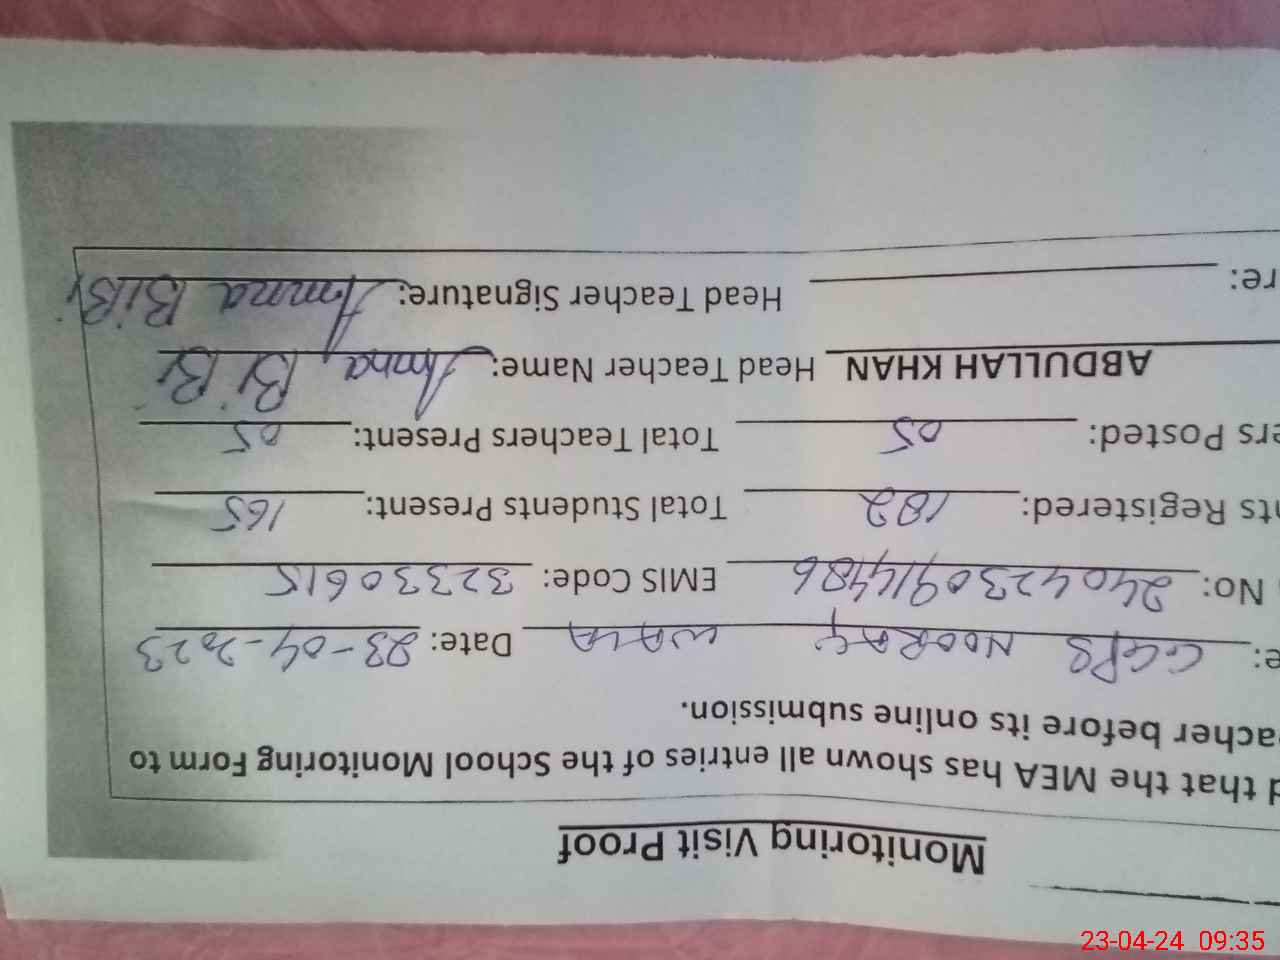 Monitoring Visit Proof
d that the MEA has shown all entries of the School Monitoring Form to
acher before its online submission.
e: GGPS NOORAY WALA Date: 23-04-2023
No: 2404230914486 EMIS Code: 32330615
ts Registered: 182 Total Students Present: 165
ers Posted: 05 Total Teachers Present: 05
ABDULLAH KHAN Head Teacher Name: Amna BiBi
re: Head Teacher Signature: Amna BiBi
23-04-24 09:35